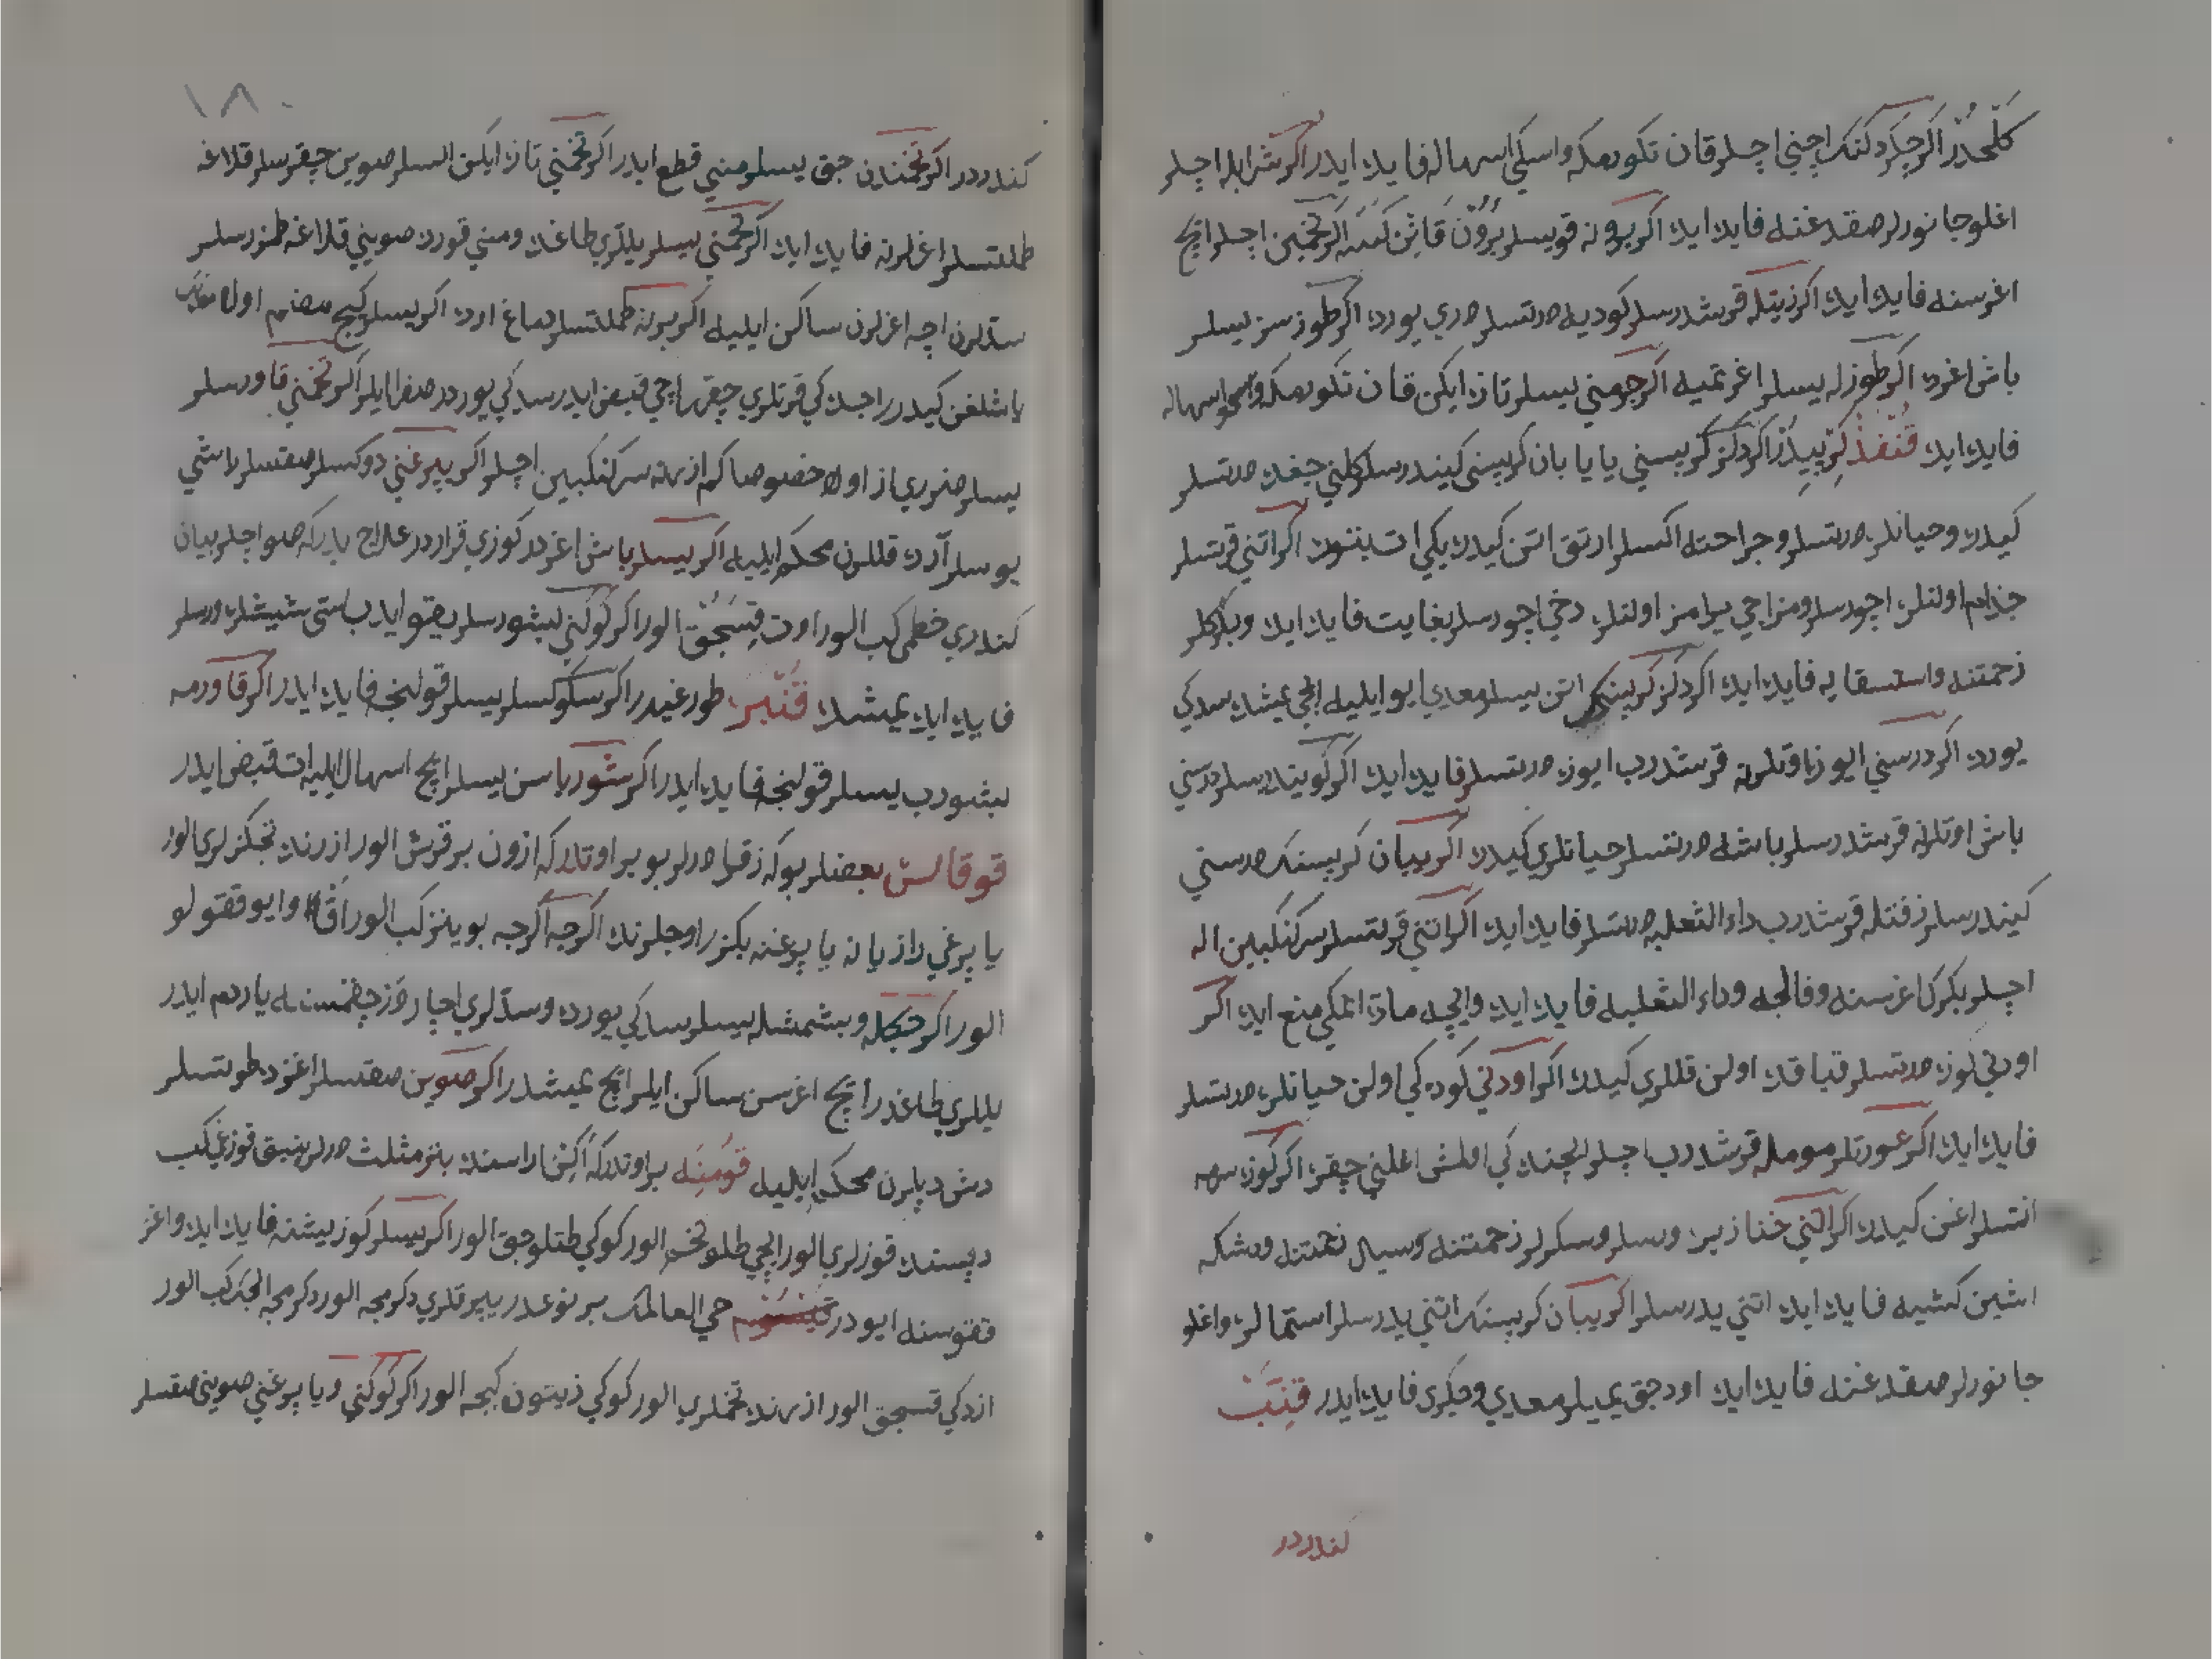 كلحدر اكر جكردكنك اچني اچسلر قان تكورمكه واسكي اسهاله فايده ايدر اكر شرابله اچسلر
اغلو جانورلر صقدغنه فايده ايده اكر بورنه قويسلر بورون قانن كسه اكر تخمين اچسلر ايچ
اغرسنه فايده ايده اكر زيتله قرشدرسلر كوديه درتسلر دري يورده اكر طوزسز يسلر
باش اغرده اكر طوزله يسلر اغرتميه اكر جرمني يسلر تازه ايكن قان تكورمكه واسهاله
فايده ايده قنفذ كرپيدر اكر دكز كرپيسني يا يابان كرپيسني كيندرسلر كلني جغده درتسلر
كيده وحياتلره درتسلر وجراحته اكسلر ارتق اتن كيده يكي ات بتوره اكر اتني قرتسلر
جذام اولنلره اچورسلر ومزاجي يرامز اولنلره دخي اچورسلر بغايت فايده ايده وبكركلر
زحمتنه واستسقايه فايده ايده اكر دكز كرپينك اتن يسلر معده يي ايو ايليه ايچي يمشده سدكي
يورده اكر درسني ايو زناوتلرنه قرشدرب ايوزه درتسلر فايده ايده اكر كويندرسلر درسني
باش اوتلرنه قرشدرسلر باشه درتسلر حياتلري كيدره اكر يبان كرپيسنك درسني
كيندرسلر زفتله قرشدرب داء الثعلبه درتسلر فايده ايده اكر اتني قرتسلر سركنكبين اله
اچسلر بكرك اغرسنه وفالجه وداء الثعلبه فايده ايده وايچه مادة انمكي منع ايده اكر
اودني كوزه درتسلر قباقده اولن قللري كيده اكر اودني كوده كي اولن حياتلره درتسلر
فايده ايده اكر عورتلر موميله قرشدرب اچسلر ايچنده كي اولمش اغلني چقره اكر كوزه سرمه
انتسلر اغن كيده اكر اتني خنازيره ويرسلر وسكرلر زحمتنه وسيال زحمتنه ودشكه
اشين كشيه فايده ايده اتني يدرسلر اكر يبان كرپيسنك اتني يدرسلر استعماله واغلو
جانورلر صقدغنه فايده ايده اودجق يميلر معده يي وجكري فايده ايدر قنب
كندردر
١٨٠
كندردر اكر تخمندن جق يسلر مني قطع ايدر اكر تخمني تازه ايكن اسسلر صوين چقرسلر قلاغه
طملتسلر اغرلرنه فايده ايده اكر تخمني يسلر يللري طاغده ومني قورده صويني قلاغه طمزرسلر
سدلرن اچه اغرلرن ساكن ايليه اكر بورنه طملتسلر دماغ ارده اكر يسلر كيج هضم اولا
باشلغن كيدر راجده كي قرتلري چقره اچي قبض ايدر سدكي يوردر صفرا ايلر اكر تخمني قاورسلر
يسلر ضرري از اولا خصوصا كم ازرنه سركنكبين اچلر اكر يپرغني دوكسلر صقسلر باشي
يوسلر آرده قللرن محكم ايليه اكر يسلر باش اغردر كوزي قراردر علاج بادركه صو اچلر بيان
كندري خطمي كب الور اوت قسجق الور اكر كوكني بشورسلر يقو ايدب استي شيشلره ورسلر
فايده ايده يمشده قنبره طورغيدر اكر سكوكسلر يسلر قولنجه فايده ايدر اكر قاورمه
بشورب يسلر قولنجه فايده ايدر اكر شورباسن يسلر ايچ اسهال ايليه ات قبض ايدر
قوقالس بعضلر بوكه زقرا درلر بو بر اوتدركه ازون بر قرش الور ازرنده تجكزلري الور
يا پرغي رازيانه يا پرغنه بكزر اوجلرنك اكرجه اكرجه بوينز كب الور اق وايو ققولو
الور اكر جيكله وبشمشله يسلر سدكي يورده وسدلري اچار وز چقمسنه ياردم ايدر
يللري طاغدر ايچ اغرسن ساكن ايلر ايچ يمشدر اكر صوين صقسلر اغزده طوتسلر
دش ديبلرن محكم ايليه قومنه بر اوتدركه اكين اراسنده بتر مثلث درلر بنبق قوزغي كب
ديبنده قوزلري الور ايچي طلو تخم الور كوكي طتلوجق الور اكر يسلر كوز يشنه فايده ايده واغز
ققوسنه ايودر حي العالمك بر نوعدر يپرقلري دكرمجه الور دكرمجه الجك كب الور
ازدكي قسجق الور ازرنده تخملري الور كوكي زيتون كبجه الور اكر كوكني ويا پرغني صويني صقسلر